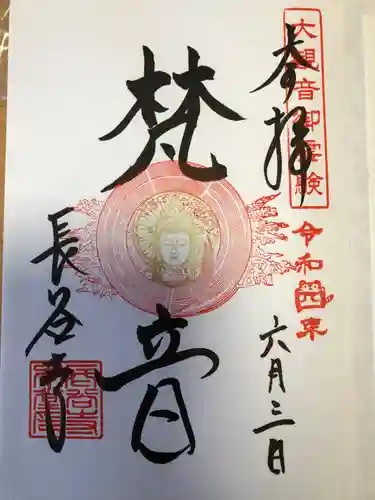 奉拝
大観音御霊験
令和四年
六月三日
梵音
長谷寺